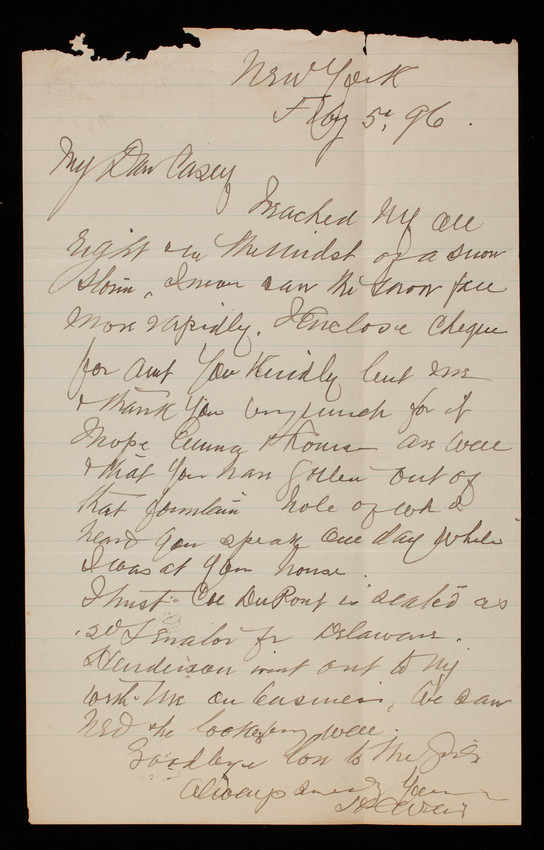 New York
Feby 5, 96.
My Dear Casey
Reached NY all
right & in the midst of a snow
storm, I never saw the snow fall
more rapidly. I Enclose cheque
for amt You Kindly lent me
& thank You very much for it
I hope Emma & Thomas are well
& that You have gotten out of
that fountain hole of wh I
heard you speak one day while
I was at Your house.
I trust Col DuPont is seated as
2d Senator fr Delaware.
Henderson went out to NJ
with me on business, We saw
Ned & he looks very well.
Goodbye love to the
Always Yours